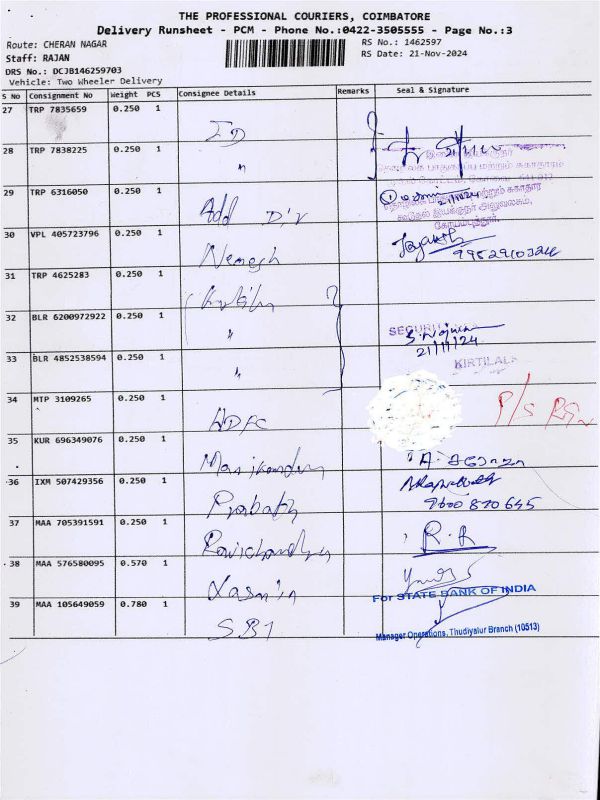 THE PROFESSIONAL COURIERS, COIMBATORE
Delivery Runsheet - PCM - Phone No.:0422-3505555 - Page No.:3
Route: CHERAN NAGAR
RS No.: 1462597
Staff: RAJAN
RS Date: 21-Nov-2024
DRS No.: DCJB146259703
Vehicle: Two Wheeler Delivery
S No Consignment No Weight PCS Consignee Details Remarks Seal & Signature
27 TRP 7835659 0.250 1 ID
28 TRP 7838225 0.250 1 "
29 TRP 6316050 0.250 1 Add Dir
30 VPL 405723796 0.250 1 Nemesh
31 TRP 4625283 0.250 1
32 BLR 6200972922 0.250 1 "
SECURITY
21/11/24
33 BLR 4852538594 0.250 1 "
KIRTILALS
34 MTP 3109265 0.250 1 HDFC P/S
35 KUR 696349076 0.250 1 Manikandan
36 IXM 507429356 0.250 1 Prabath
9600 870 645
37 MAA 705391591 0.250 1 Ravichandran R.R
38 MAA 576580095 0.570 1 Yasmin
For STATE BANK OF INDIA
39 MAA 105649059 0.780 1 SBI
Manager Operations, Thudiyalur Branch (10513)